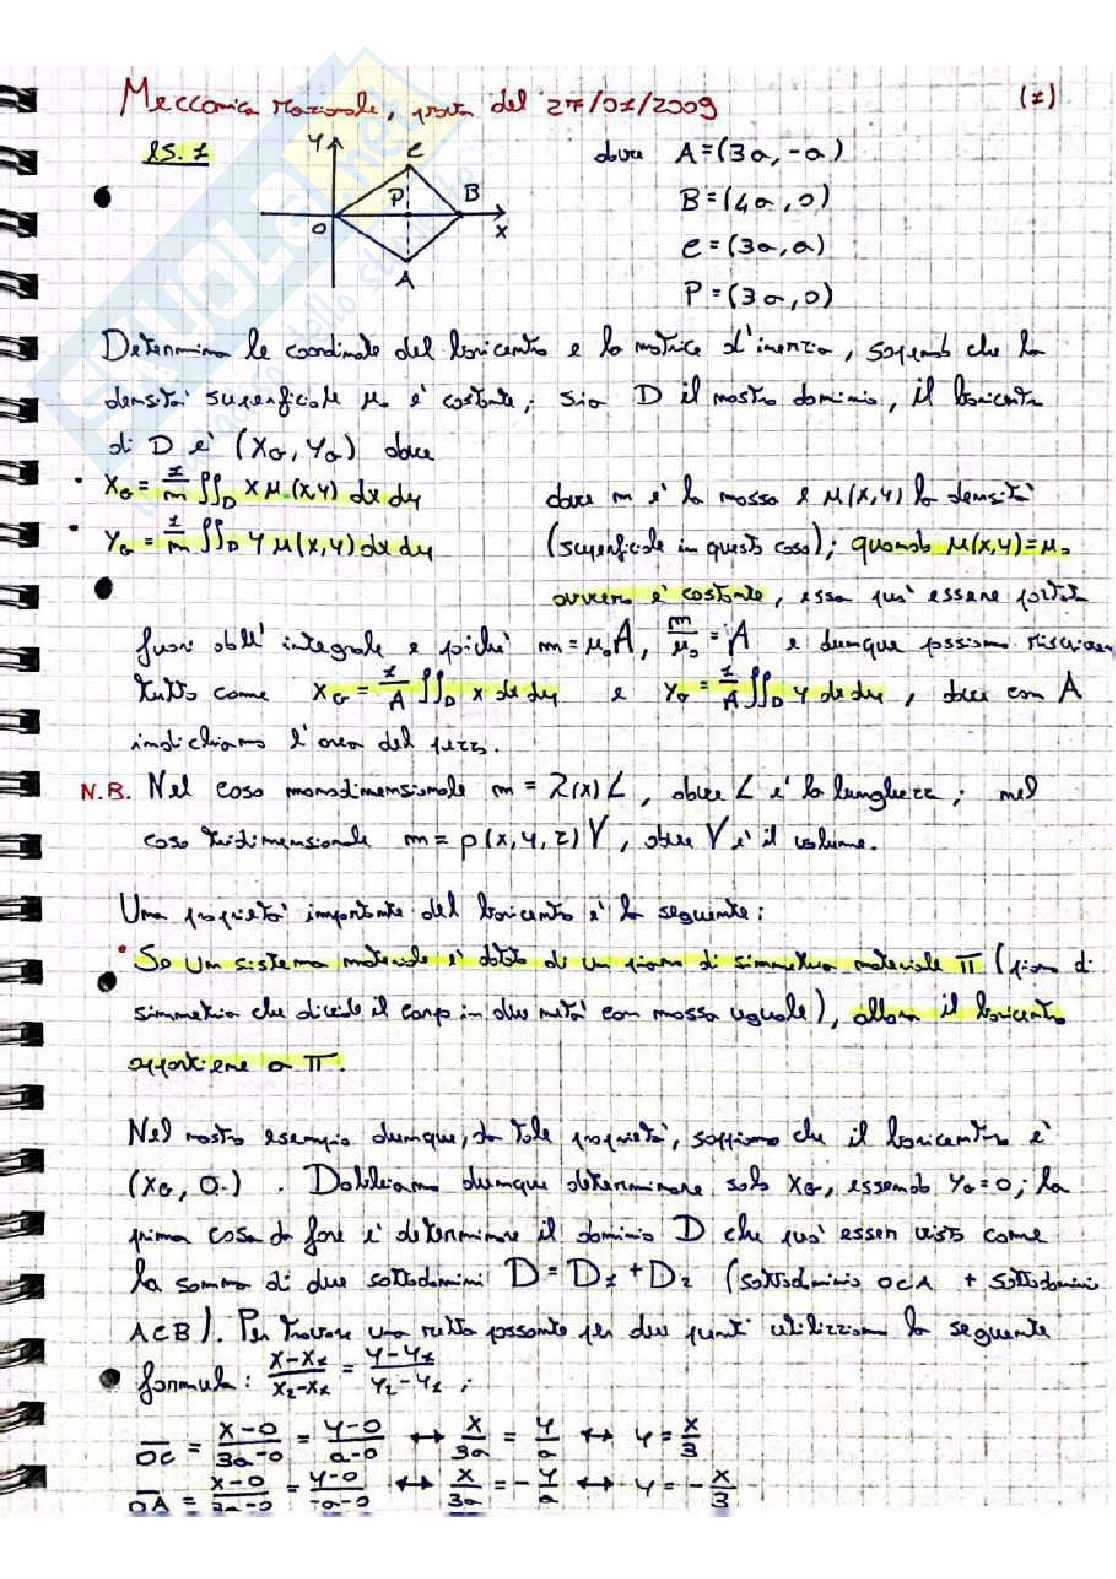 Meccanica Razionale, prova del 27/01/2009 (1)
ES. 1
Y C dove A=(3a,-a)
P B B=(4a,0)
O X C=(3a,a)
A P=(3a,0)
Determina le coordinate del baricentro e la matrice d'inerzia, sapendo che la
densità superficiale μ₀ è costante; sia D il nostro dominio, il baricentro
di D è (X_G, Y_G) dove
• X_G = 1/m ∬_D x μ(x,y) dx dy dove m è la massa e μ(x,y) la densità
• Y_G = 1/m ∬_D y μ(x,y) dx dy (superficiale in questo caso); quando μ(x,y)=μ₀
ovvero è costante, essa può essere portata
fuori dall'integrale e poiché m=μ₀A, m/μ₀ = A e dunque possiamo riscrivere
tutto come X_G = 1/A ∬_D x dx dy e Y_G = 1/A ∬_D y dx dy, dove con A
indichiamo l'area del pezzo.
N.B. Nel caso monodimensionale m = λ(x)L, dove L è la lunghezza; nel
caso tridimensionale m=ρ(x,y,z)V, dove V è il volume.
Una proprietà importante del baricentro è la seguente:
• Se un sistema materiale è dotato di un piano di simmetria materiale π (piano di
simmetria che divide il corpo in due metà con massa uguale), allora il baricentro
appartiene a π.
Nel nostro esempio dunque, da tale proprietà, sappiamo che il baricentro è
(X_G, 0). Dobbiamo dunque determinare solo X_G, essendo Y_G=0; la
prima cosa da fare è determinare il dominio D che può essere visto come
la somma di due sottodomini D=D₁+D₂ (sottodominio OCA + sottodominio
ACB). Per trovare una retta passante per due punti utilizziamo la seguente
formula: (x-x₁)/(x₂-x₁) = (y-y₁)/(y₂-y₁);
OC = (x-0)/(3a-0) = (y-0)/(a-0) ↔ x/3a = y/a ↔ y = x/3
OA = (x-0)/(3a-0) = (y-0)/(-a-0) ↔ x/3a = -y/a ↔ y = -x/3